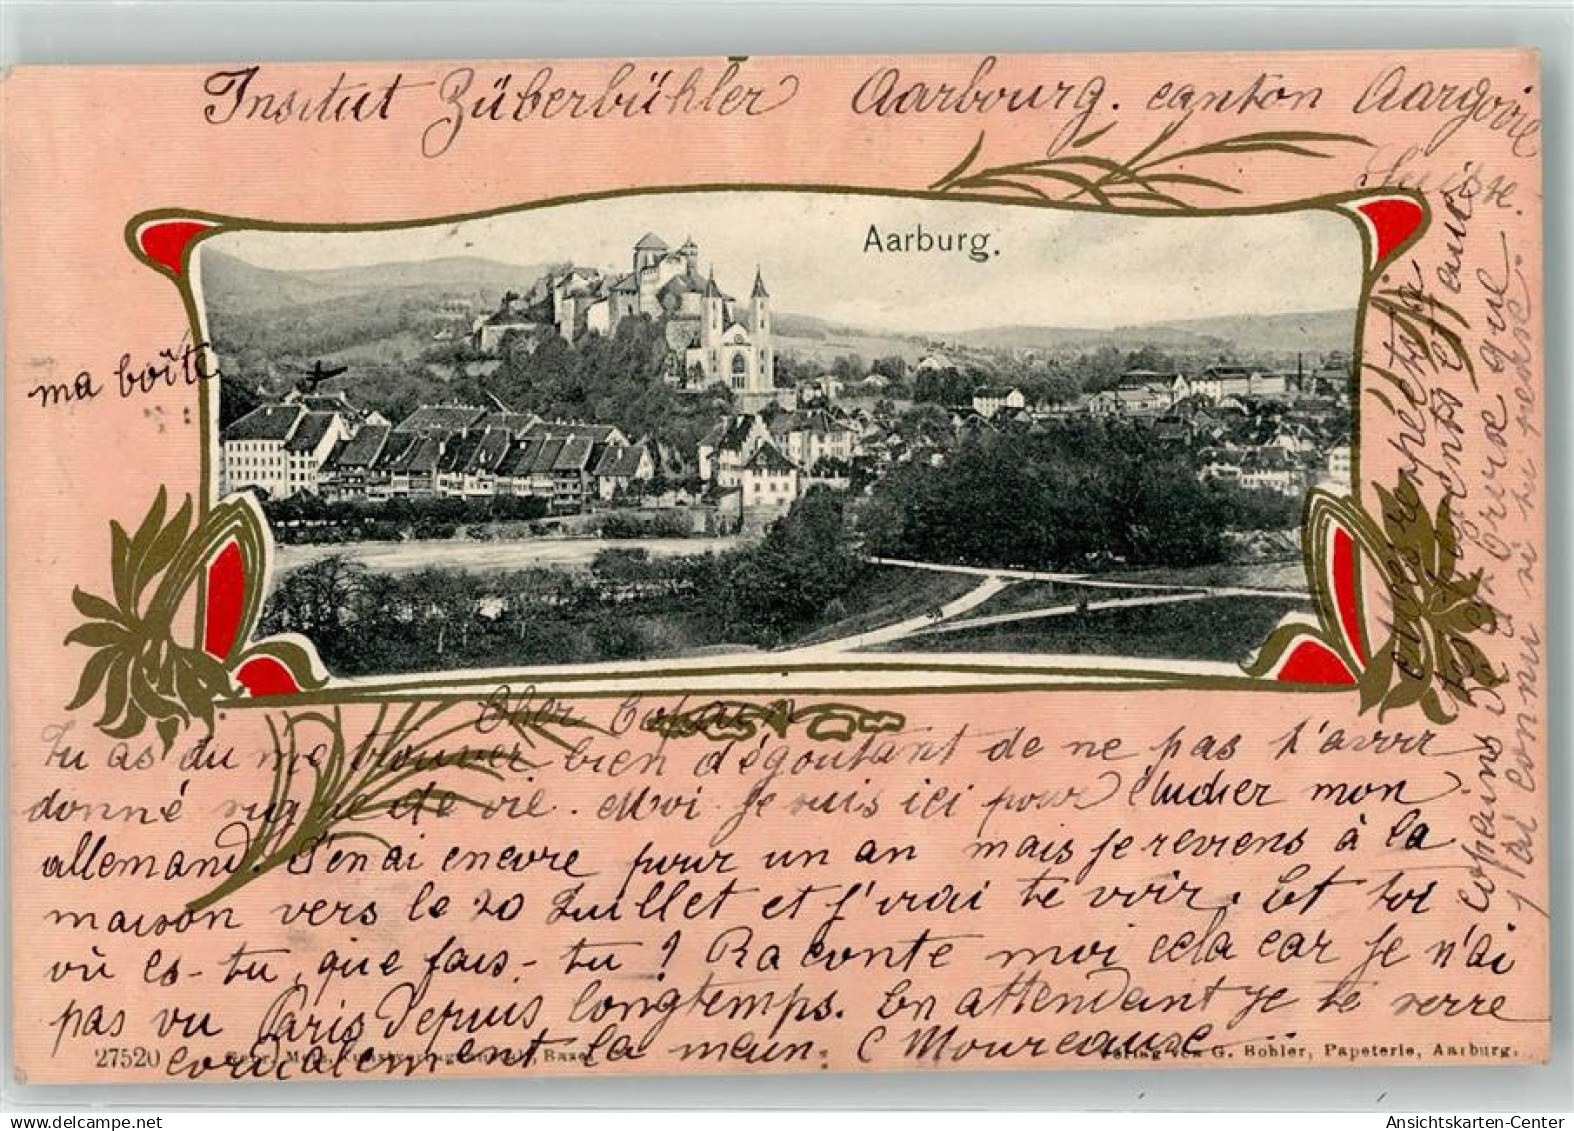 Institut Züberbühler Aarbourg. canton Aargovie
Suisse.
Aarburg.
ma boîte
Cher Copain
Tu as du me trouver bien dégoutant de ne pas t'avoir
donné signe de vie. Moi je suis ici pour étudier mon
allemand. J'en ai encore pour un an mais je reviens à la
maison vers le 20 Juillet et j'irai te voir. Et toi
où es-tu, que fais-tu? Raconte moi cela car je n'ai
pas vu Paris depuis longtemps. En attendant je te serre
cordialement la main. C Mourceause
copains de
j'ai connu si tu penses
27520
Basel
Verlag von G. Bohler, Papeterie, Aarburg.
Ansichtskarten-Center